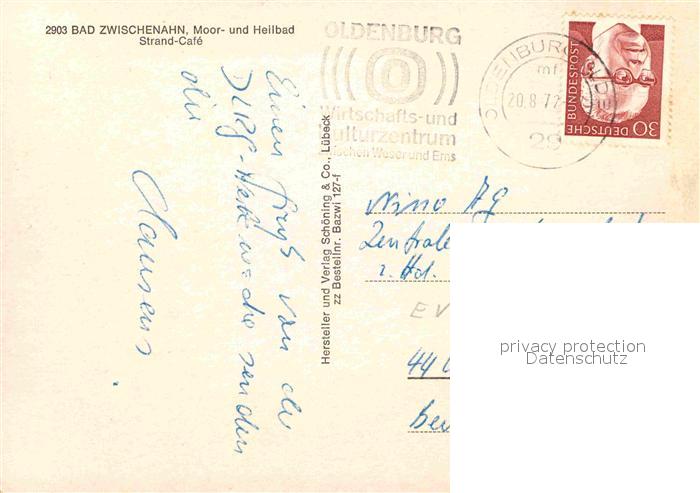 2903 BAD ZWISCHENAHN, Moor- und Heilbad
Strand-Café
OLDENBURG
Wirtschafts-und
Kulturzentrum
zwischen Weser und Ems
OLDENBURG OLDB
mf
20.8.72
29
DEUTSCHE BUNDESPOST
30
Hersteller und Verlag Schöning & Co., Lübeck
zz Bestellnr. Bazwi 127-f
Einen Gruß von der
DLRG-
senden
die
Clausens.
Nino AG
Zentrale
z. Hd.
EV
44
privacy protection
Datenschutz